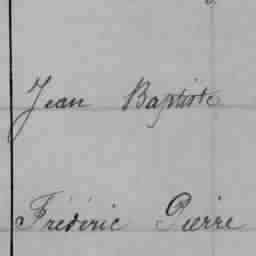 Jean Baptiste
Frédéric Pierre